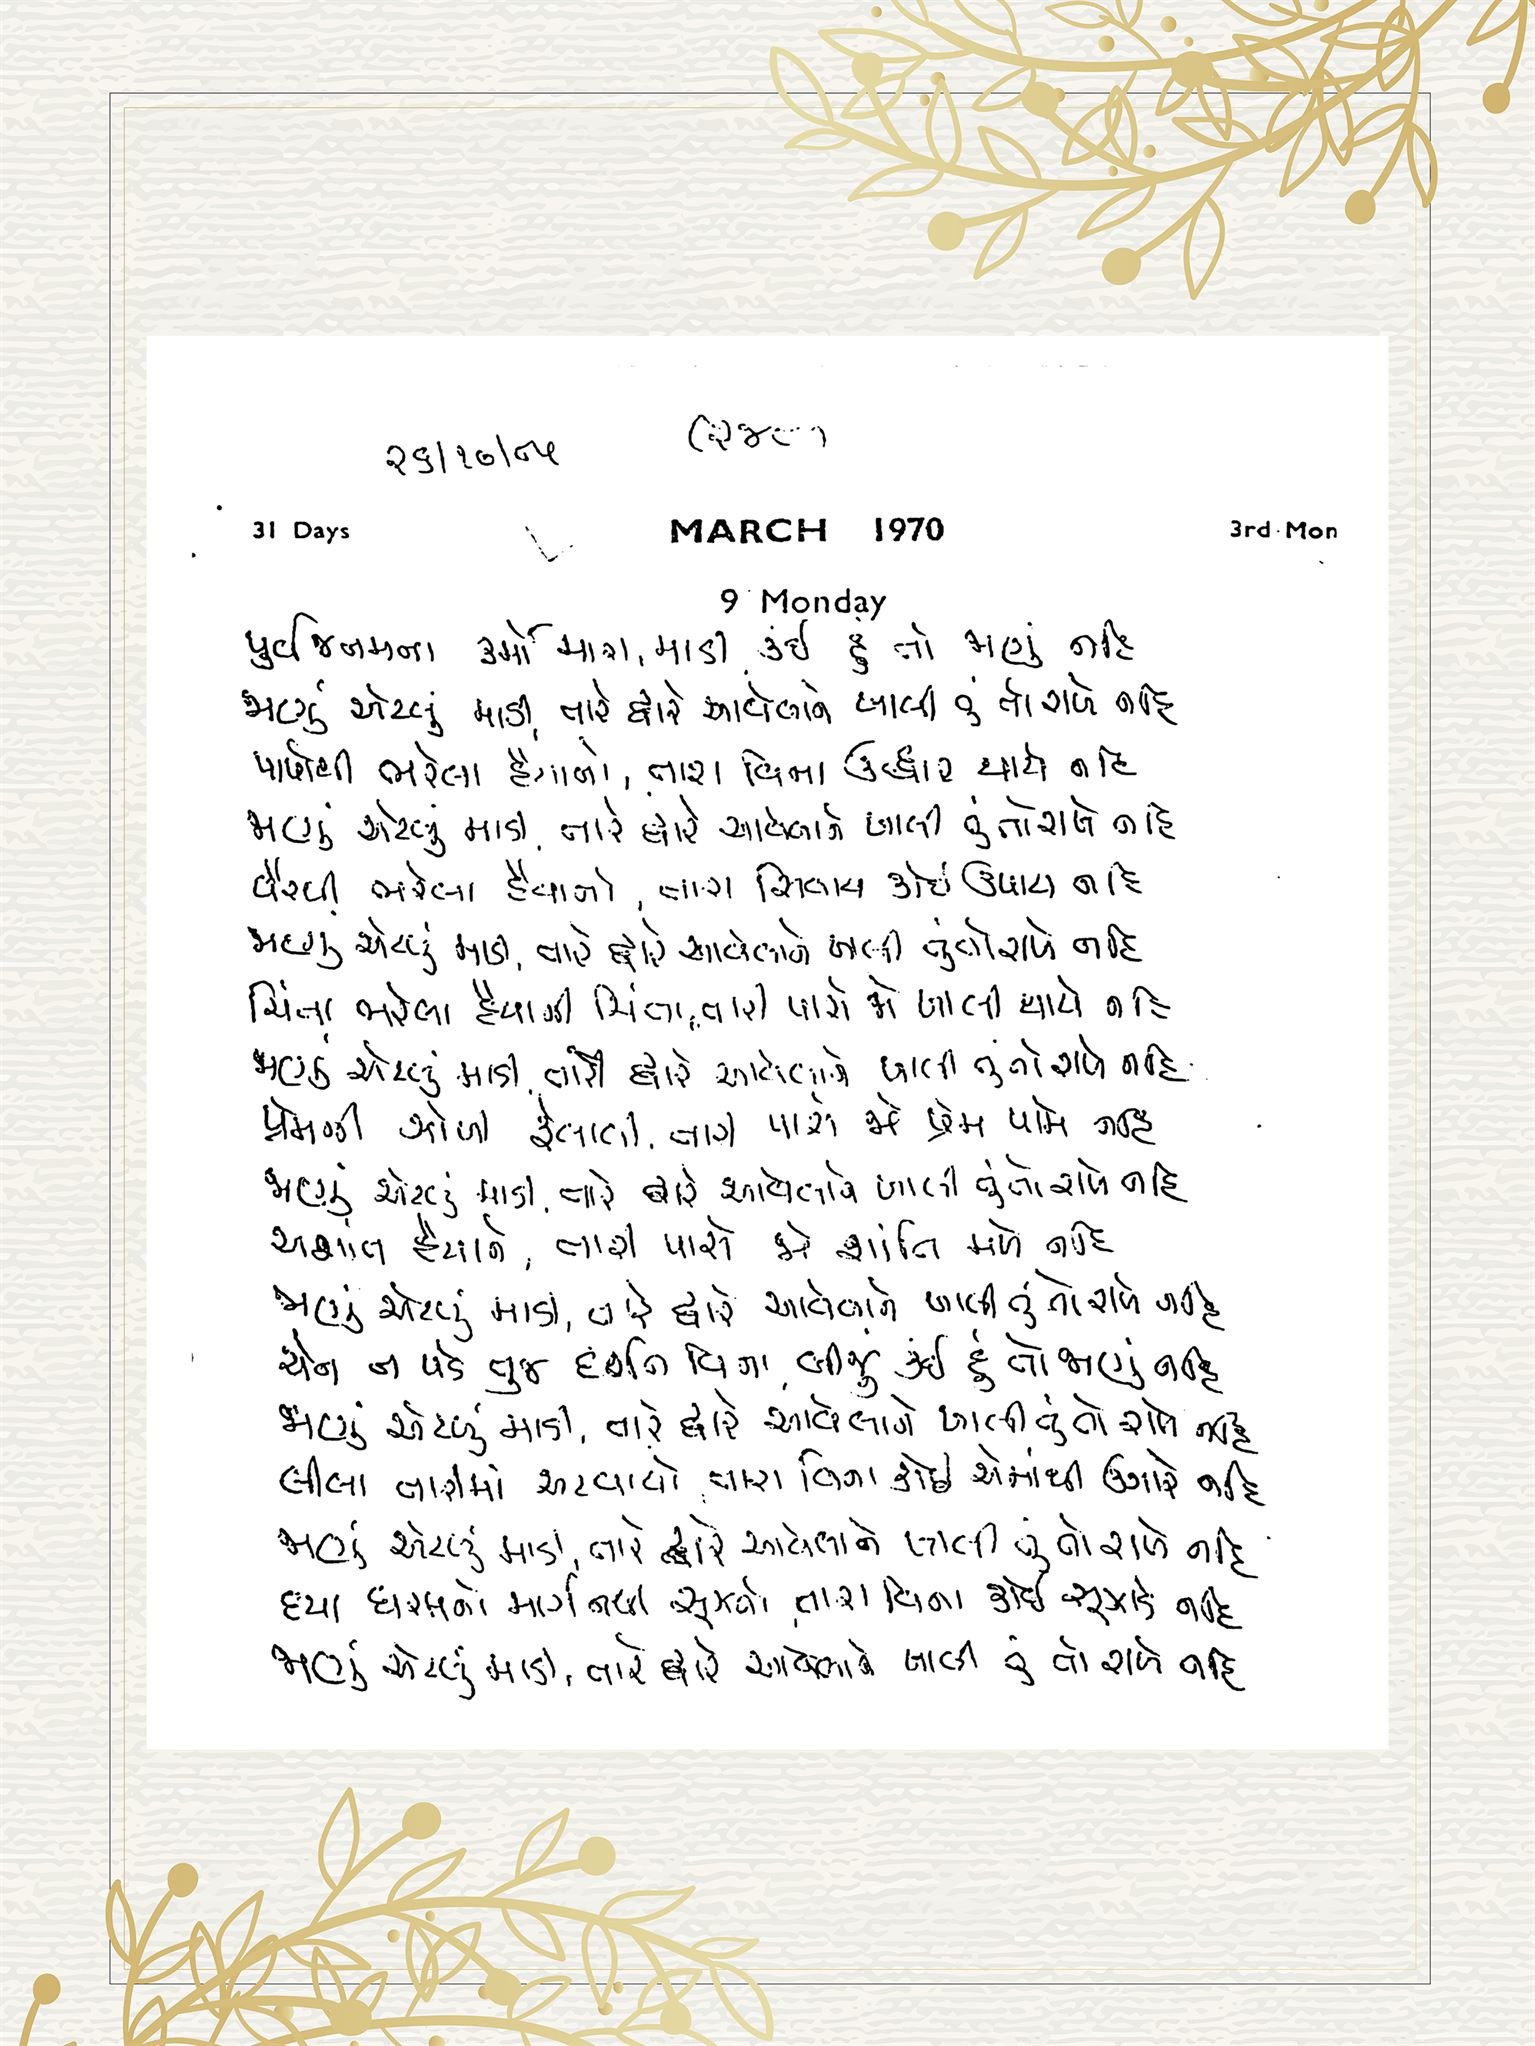 ૨૬/૧૦/૮૫
31 Days MARCH 1970 3rd Mon
9 Monday
પુર્વ જનમના કર્મો મારા, માડી કંઈ હું તો જાણું નહિ
જાણું એટલું માડી, તારે દ્વારે આવેલાને ખાલી તું તો રાખે નહિ
પાપોથી ભરેલા હૈયાનો, તારા વિના ઉદ્ધાર થાયે નહિ
જાણું એટલું માડી, તારે દ્વારે આવેલાને ખાલી તું તો રાખે નહિ
વૈરથી ભરેલા હૈયાનો, તારા સિવાય કોઈ ઉપાય નહિ
જાણું એટલું માડી, તારે દ્વારે આવેલાને ખાલી તું તો રાખે નહિ
ચિંતા ભરેલા હૈયાની ચિંતા, તારી પાસે જો ખાલી થાયે નહિ
જાણું એટલું માડી, તારે દ્વારે આવેલાને ખાલી તું તો રાખે નહિ
પ્રેમની ઝોળી ફેલાવી, તારી પાસે જો પ્રેમ પામે નહિ
જાણું એટલું માડી, તારે દ્વારે આવેલાને ખાલી તું તો રાખે નહિ
અશાંત હૈયાને, તારી પાસે જો શાંતિ મળે નહિ
જાણું એટલું માડી, તારે દ્વારે આવેલાને ખાલી તું તો રાખે નહિ
ચેન ન પડે તુજ દર્શન વિના, બીજું કંઈ હું તો જાણું નહિ
જાણું એટલું માડી, તારે દ્વારે આવેલાને ખાલી તું તો રાખે નહિ
લીલા તારીમાં અટવાયો, તારા વિના કોઈ એમાંથી ઉગારે નહિ
જાણું એટલું માડી, તારે દ્વારે આવેલાને ખાલી તું તો રાખે નહિ
દયા ધરમનો માર્ગ નથી સૂઝતો, તારા વિના કોઈ સૂઝાડે નહિ
જાણું એટલું માડી, તારે દ્વારે આવેલાને ખાલી તું તો રાખે નહિ